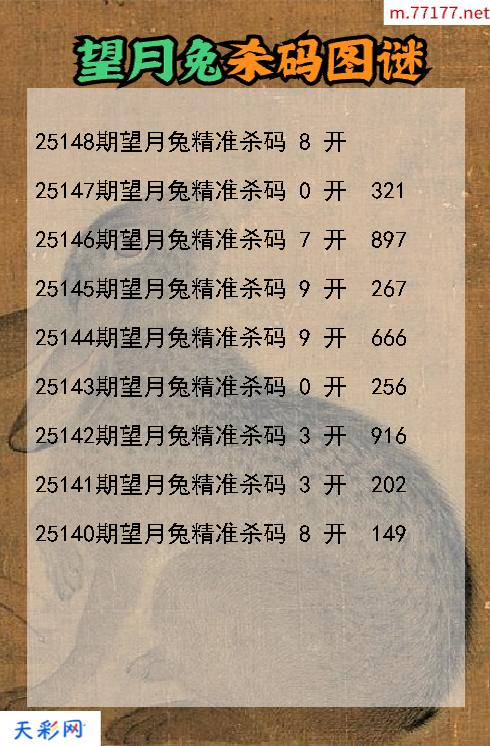 m.77177.net
望月兔杀码图谜
25148期望月兔精准杀码 8 开
25147期望月兔精准杀码 0 开 321
25146期望月兔精准杀码 7 开 897
25145期望月兔精准杀码 9 开 267
25144期望月兔精准杀码 9 开 666
25143期望月兔精准杀码 0 开 256
25142期望月兔精准杀码 3 开 916
25141期望月兔精准杀码 3 开 202
25140期望月兔精准杀码 8 开 149
天彩网